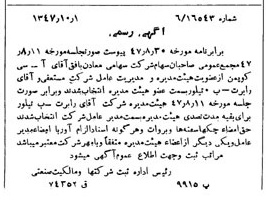 شماره ۶/۱۶۵۴۳ ۱۳۴۷/۱۰/۱
آگهی رسمی
برابر نامه مورخه ۴۷/۸/۳۰ پیوست صورتجلسه مورخه ۸/۱۱ر
۴۷ مجمع عمومی صاحبان سهام شرکت سهامی معادن بافق آقای آ ـ سی
کوپمن از عضویت هیئت مدیره و مدیریت عامل شرکت مستعفی و آقای
رابرت ـ ب ـ تیلور بسمت عضو هیئت مدیره انتخاب شدند و برابر صورت
جلسه مورخه ۴۷/۸/۱۱ هیئت مدیره شرکت آقای رابرت ـ ب تیلور
برای بقیه مدت تصدی هیئت مدیره بسمت مدیر عامل شرکت انتخاب شدند
حق امضاء چکها سفته‌ها و بروات و هرگونه اسناد الزام آور با امضاء مدیر
عامل و یکی دیگر از اعضاء هیئت مدیره متفقا و با مهر شرکت معتبر میباشد
مراتب ثبت وجهت اطلاع عموم آگهی میشود
رئیس اداره ثبت شرکتها و مالکیت صنعتی
پ ۹۹۱۵ ق ۷۴۳۵۲